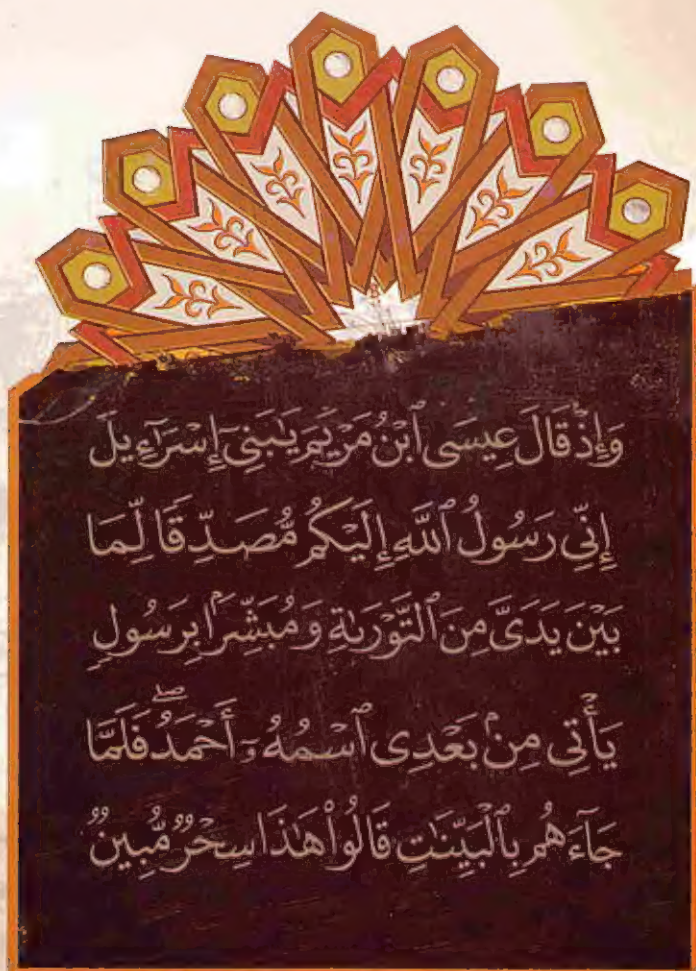 وَإِذْ قَالَ عِيسَى ٱبْنُ مَرْيَمَ يَٰبَنِىٓ إِسْرَٰٓءِيلَ
إِنِّى رَسُولُ ٱللَّهِ إِلَيْكُم مُّصَدِّقًا لِّمَا
بَيْنَ يَدَىَّ مِنَ ٱلتَّوْرَىٰةِ وَمُبَشِّرًۢا بِرَسُولٍ
يَأْتِى مِنۢ بَعْدِى ٱسْمُهُۥٓ أَحْمَدُ ۖ فَلَمَّا
جَآءَهُم بِٱلْبَيِّنَٰتِ قَالُوا۟ هَٰذَا سِحْرٌ مُّبِينٌ